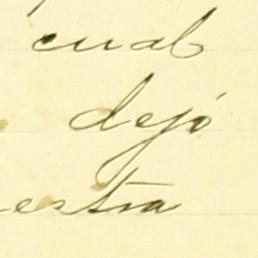 cual
dejó
estra